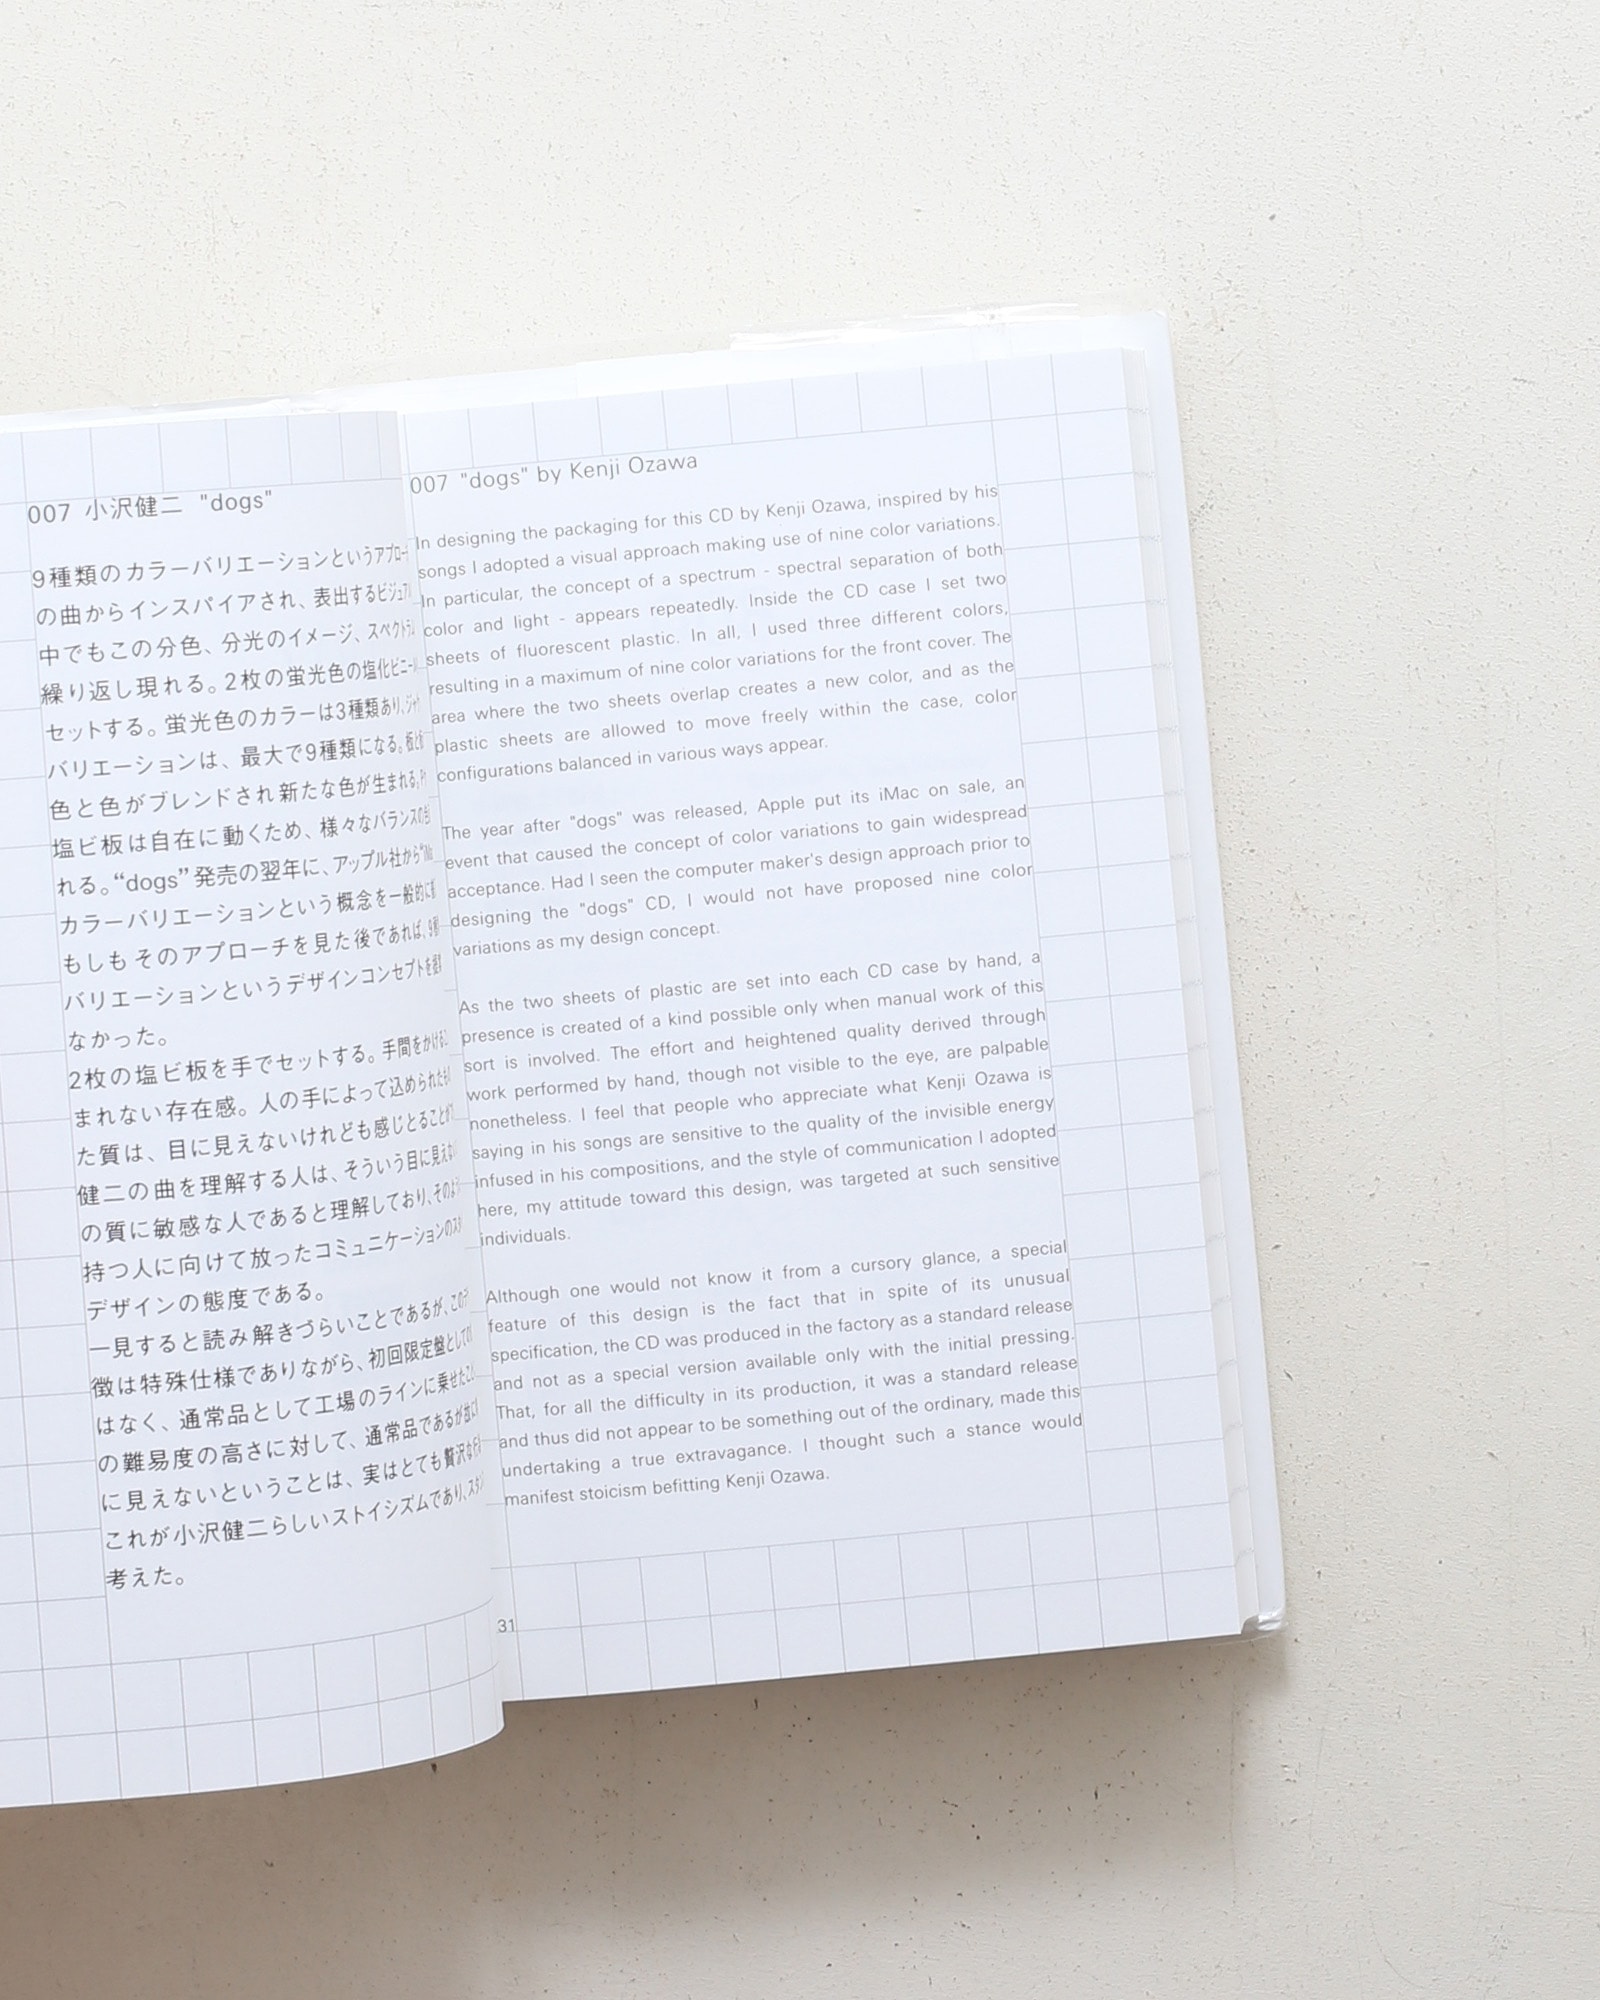 007 小沢健二 "dogs"
9種類のカラーバリエーションというアプロー
の曲からインスパイアされ、表出するビジュアル
中でもこの分色、分光のイメージ、スペクトラム
繰り返し現れる。2枚の蛍光色の塩化ビニール
セットする。蛍光色のカラーは3種類あり、ジャケ
バリエーションは、最大で9種類になる。板と板
色と色がブレンドされ新たな色が生まれる。
塩ビ板は自在に動くため、様々なバランスの
れる。“dogs”発売の翌年に、アップル社から“iMa
カラーバリエーションという概念を一般的に
もしもそのアプローチを見た後であれば、9種
バリエーションというデザインコンセプトを
なかった。
2枚の塩ビ板を手でセットする。手間をかける
まれない存在感。人の手によって込められた
た質は、目に見えないけれども感じとることが
健二の曲を理解する人は、そういう目に見えな
の質に敏感な人であると理解しており、そのよう
持つ人に向けて放ったコミュニケーションのスタ
デザインの態度である。
一見すると読み解きづらいことであるが、このデ
徴は特殊仕様でありながら、初回限定盤としての
はなく、通常品として工場のラインに乗せたこ
の難易度の高さに対して、通常品であるが故に
に見えないということは、実はとても贅沢な
これが小沢健二らしいストイシズムであり、スタン
考えた。
007 "dogs" by Kenji Ozawa
In designing the packaging for this CD by Kenji Ozawa, inspired by his
songs I adopted a visual approach making use of nine color variations.
In particular, the concept of a spectrum - spectral separation of both
color and light - appears repeatedly. Inside the CD case I set two
sheets of fluorescent plastic. In all, I used three different colors,
resulting in a maximum of nine color variations for the front cover. The
area where the two sheets overlap creates a new color, and as the
plastic sheets are allowed to move freely within the case, color
configurations balanced in various ways appear.
The year after "dogs" was released, Apple put its iMac on sale, an
event that caused the concept of color variations to gain widespread
acceptance. Had I seen the computer maker's design approach prior to
designing the "dogs" CD, I would not have proposed nine color
variations as my design concept.
As the two sheets of plastic are set into each CD case by hand, a
presence is created of a kind possible only when manual work of this
sort is involved. The effort and heightened quality derived through
work performed by hand, though not visible to the eye, are palpable
nonetheless. I feel that people who appreciate what Kenji Ozawa is
saying in his songs are sensitive to the quality of the invisible energy
infused in his compositions, and the style of communication I adopted
here, my attitude toward this design, was targeted at such sensitive
individuals.
Although one would not know it from a cursory glance, a special
feature of this design is the fact that in spite of its unusual
specification, the CD was produced in the factory as a standard release
and not as a special version available only with the initial pressing.
That, for all the difficulty in its production, it was a standard release
and thus did not appear to be something out of the ordinary, made this
undertaking a true extravagance. I thought such a stance would
manifest stoicism befitting Kenji Ozawa.
31